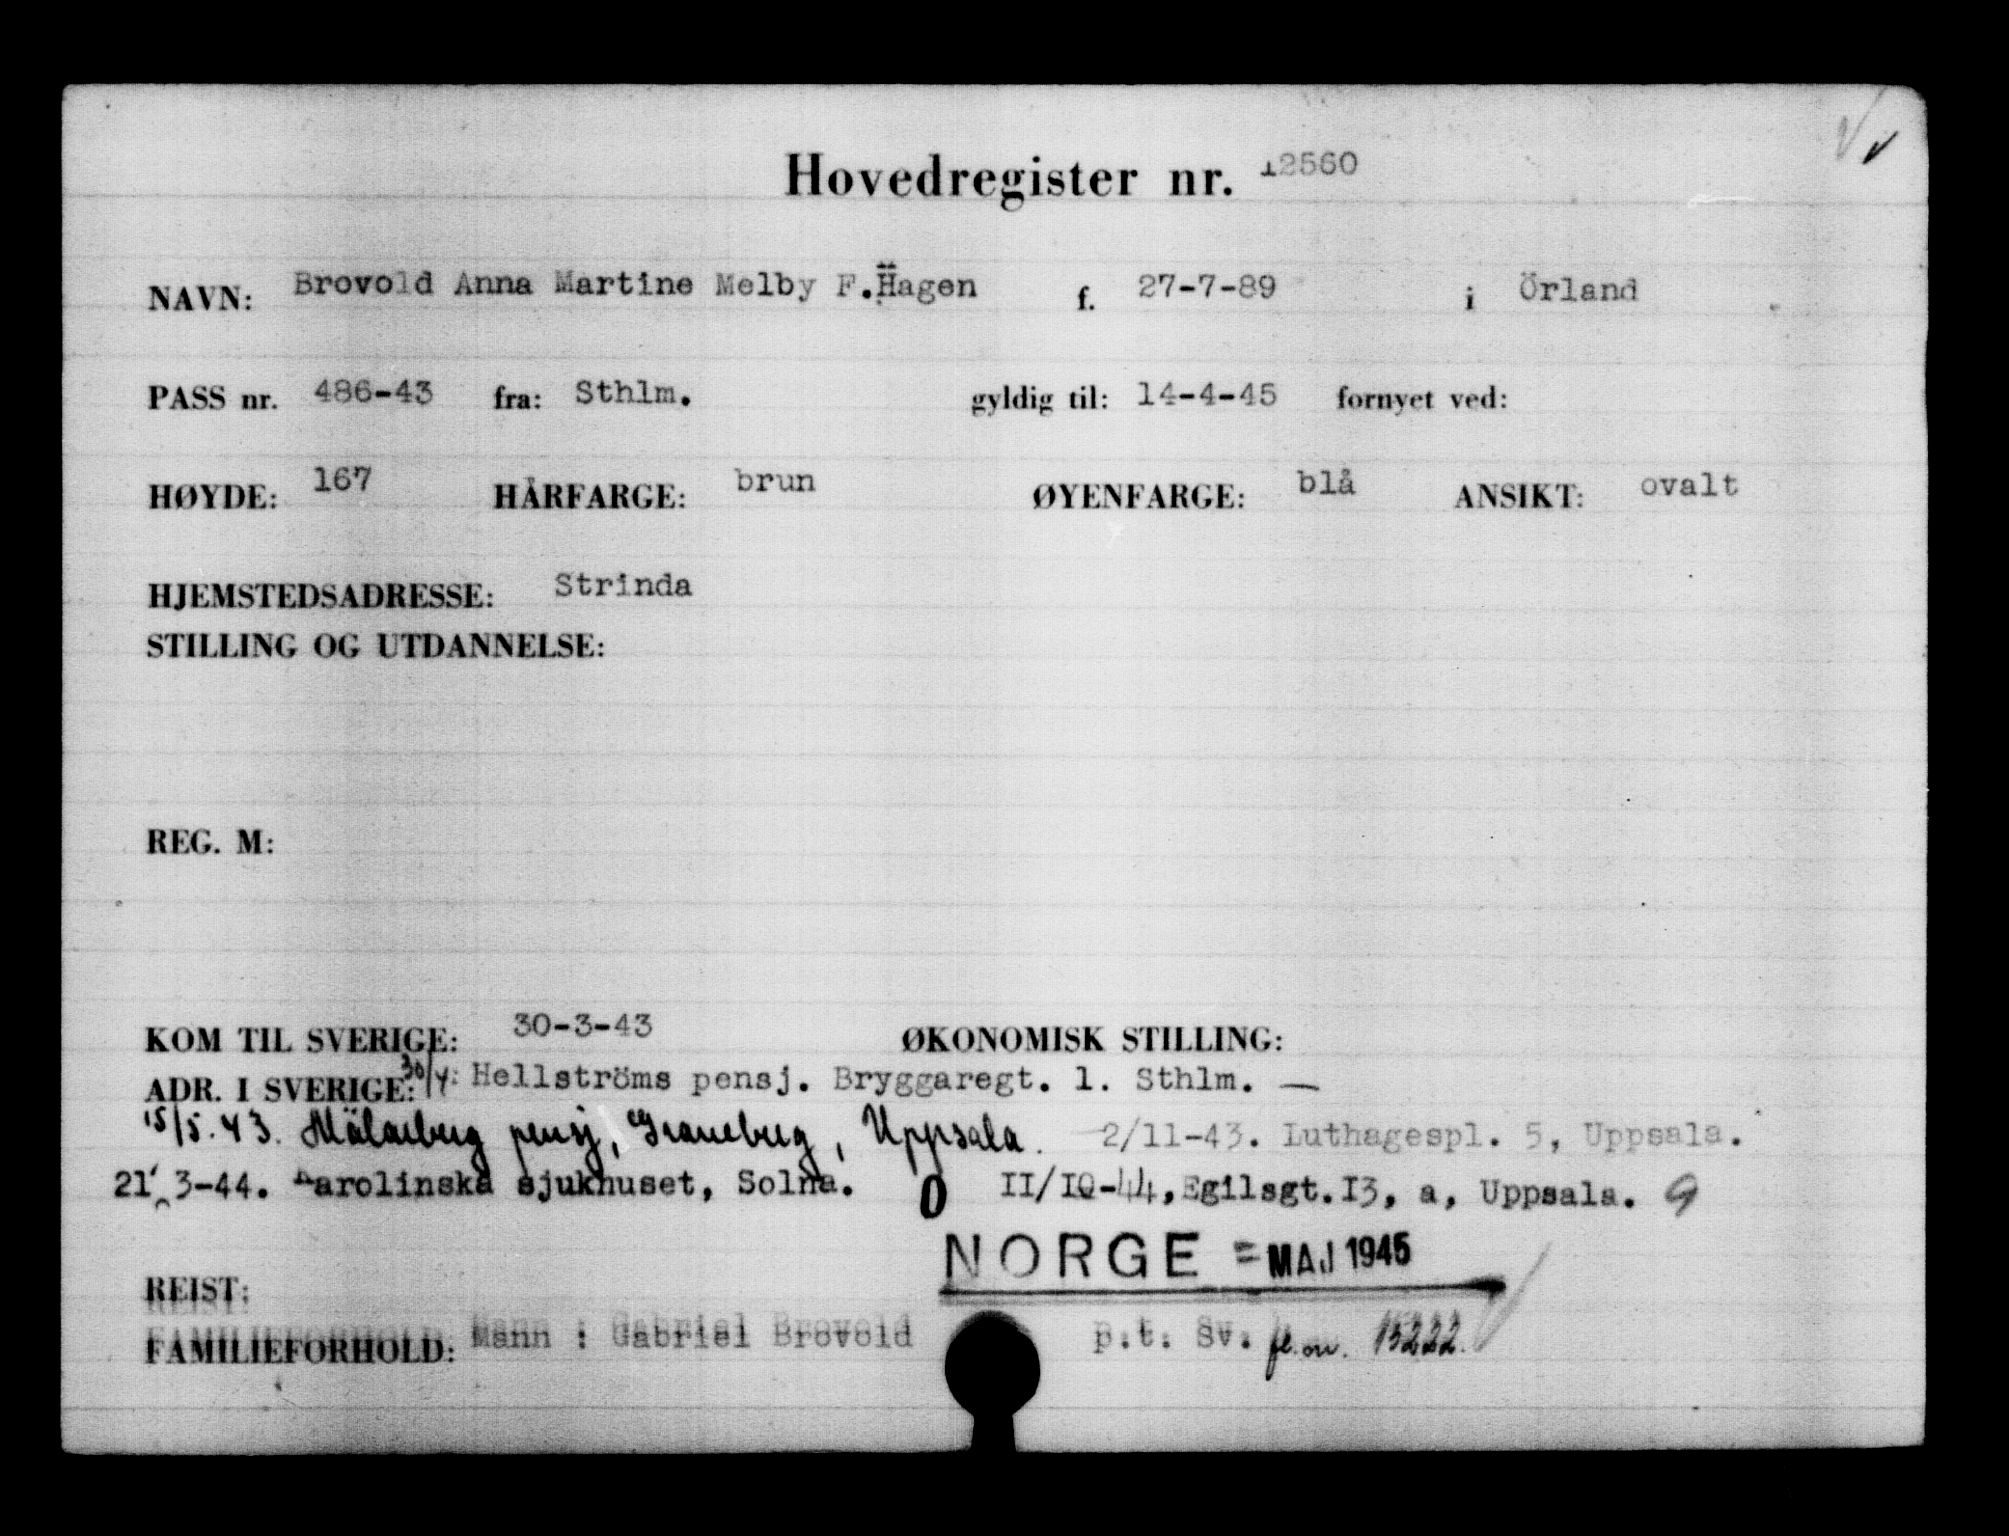 Hovedregister nr. 12560
NAVN: Brovold Anna Martine Melby F. Hagen f. 27-7-89 i Örland
PASS nr. 486-43 fra: Sthlm. gyldig til: 14-4-45 fornyet ved:
HØYDE: 167 HÅRFARGE: brun ØYENFARGE: blå ANSIKT: ovalt
HJEMSTEDSADRESSE: Strinda
STILLING OG UTDANNELSE:
REG. M:
KOM TIL SVERIGE: 30-3-43 ØKONOMISK STILLING:
ADR. I SVERIGE: 30/4: Hellströms pensj. Bryggaregt. 1. Sthlm. —
15/5.43. Mälarberg pensj, Graneberg, Uppsala. 2/11-43. Luthagespl. 5, Uppsala.
21/3-44. Karolinska sjukhuset, Solna. O II/10-44, Egilsgt. I3, a, Uppsala. 9
NORGE = MAJ 1945
REIST:
FAMILIEFORHOLD: Mann : Gabriel Brovold p.t. Sv. fl. nr. 15222.